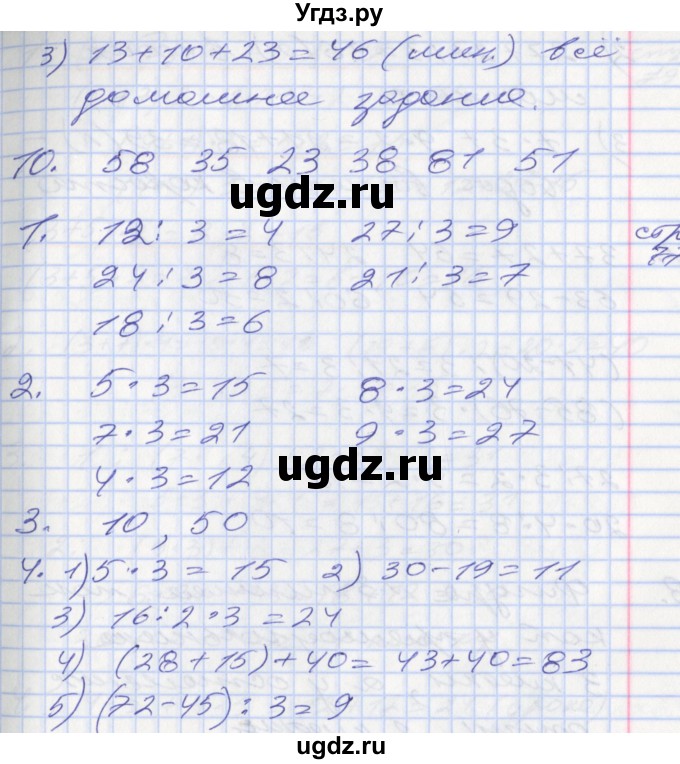 Угдз.ру
3) 13+10+23=46 (мин.) всё
домашнее задание.
10. 58 35 23 38 81 51
ugdz.ru
1. 12:3=4 27:3=9
стр
24:3=8 21:3=7
18:3=6
2. 5·3=15 8·3=24
7·3=21 9·3=27
ugdz.ru
4·3=12
3. 10, 50
4. 1) 5·3=15 2) 30-19=11
3) 16:2·3=24
4) (28+15)+40=43+40=83
5) (72-45):3=9
ugdz.ru